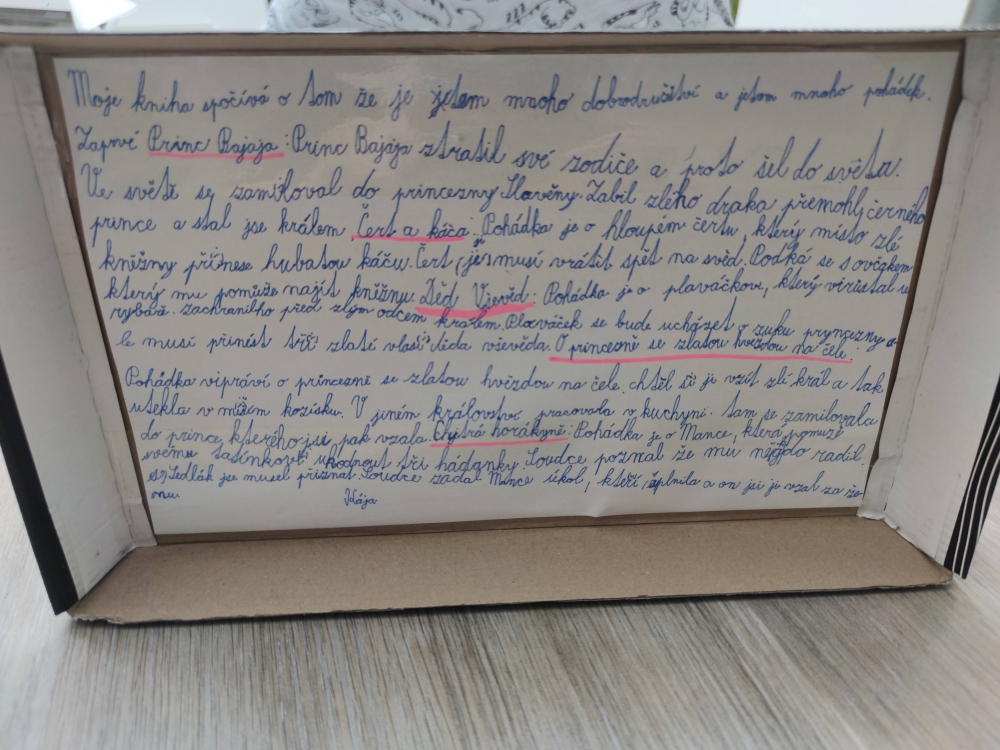 Moje kniha spočívá o tom že je jetem mnoho dobrodružství a jetom mnoho pohádek.
Zaprvé Princ Bajaja: Princ Bajája ztratil své rodiče a proto šel do světa.
Ve světě se zamiloval do princezny Slavěny. Zabil zlého draka přemohl černého
prince a stal jse králem Čert a káča: Pohádka je o hloupém čertu, který místo zlé
kněžny přinese hubatou káču. Čert jí musí vrátit spět na svěd. Podká se s ovčákem
který mu pomůže najít kněžnu. Děd Vševěd: Pohádka je o plaváčkovi, který virůstal u
rybáře. zachraniliho před zlým odcem králem. Plaváček se bude ucházet o ruku pryncezny a
le musí přinést tři zlatí vlasi děda vševěda. O princezně se zlatou hvězdou na čele:
Pohádka vipráví o princezně se zlatou hvězdou na čele. chtěl si ji vzít zlí král a tak
utekla v miším kozísku. V jiném královstvé pracovada v kuchyni. tam se zamilovala
do prince, kterého jsi pak vzala. Chytrá horákyně: Pohádka je o Mance, která pomuže
svému tatínkovi uhodnout tři hádanky. Soudce poznal že mu někdo radil.
Sedlák jse musel přiznat. Soudce zadal Mance úkol, kteří splnila a on jsi ji vzal za že
nu. Kája